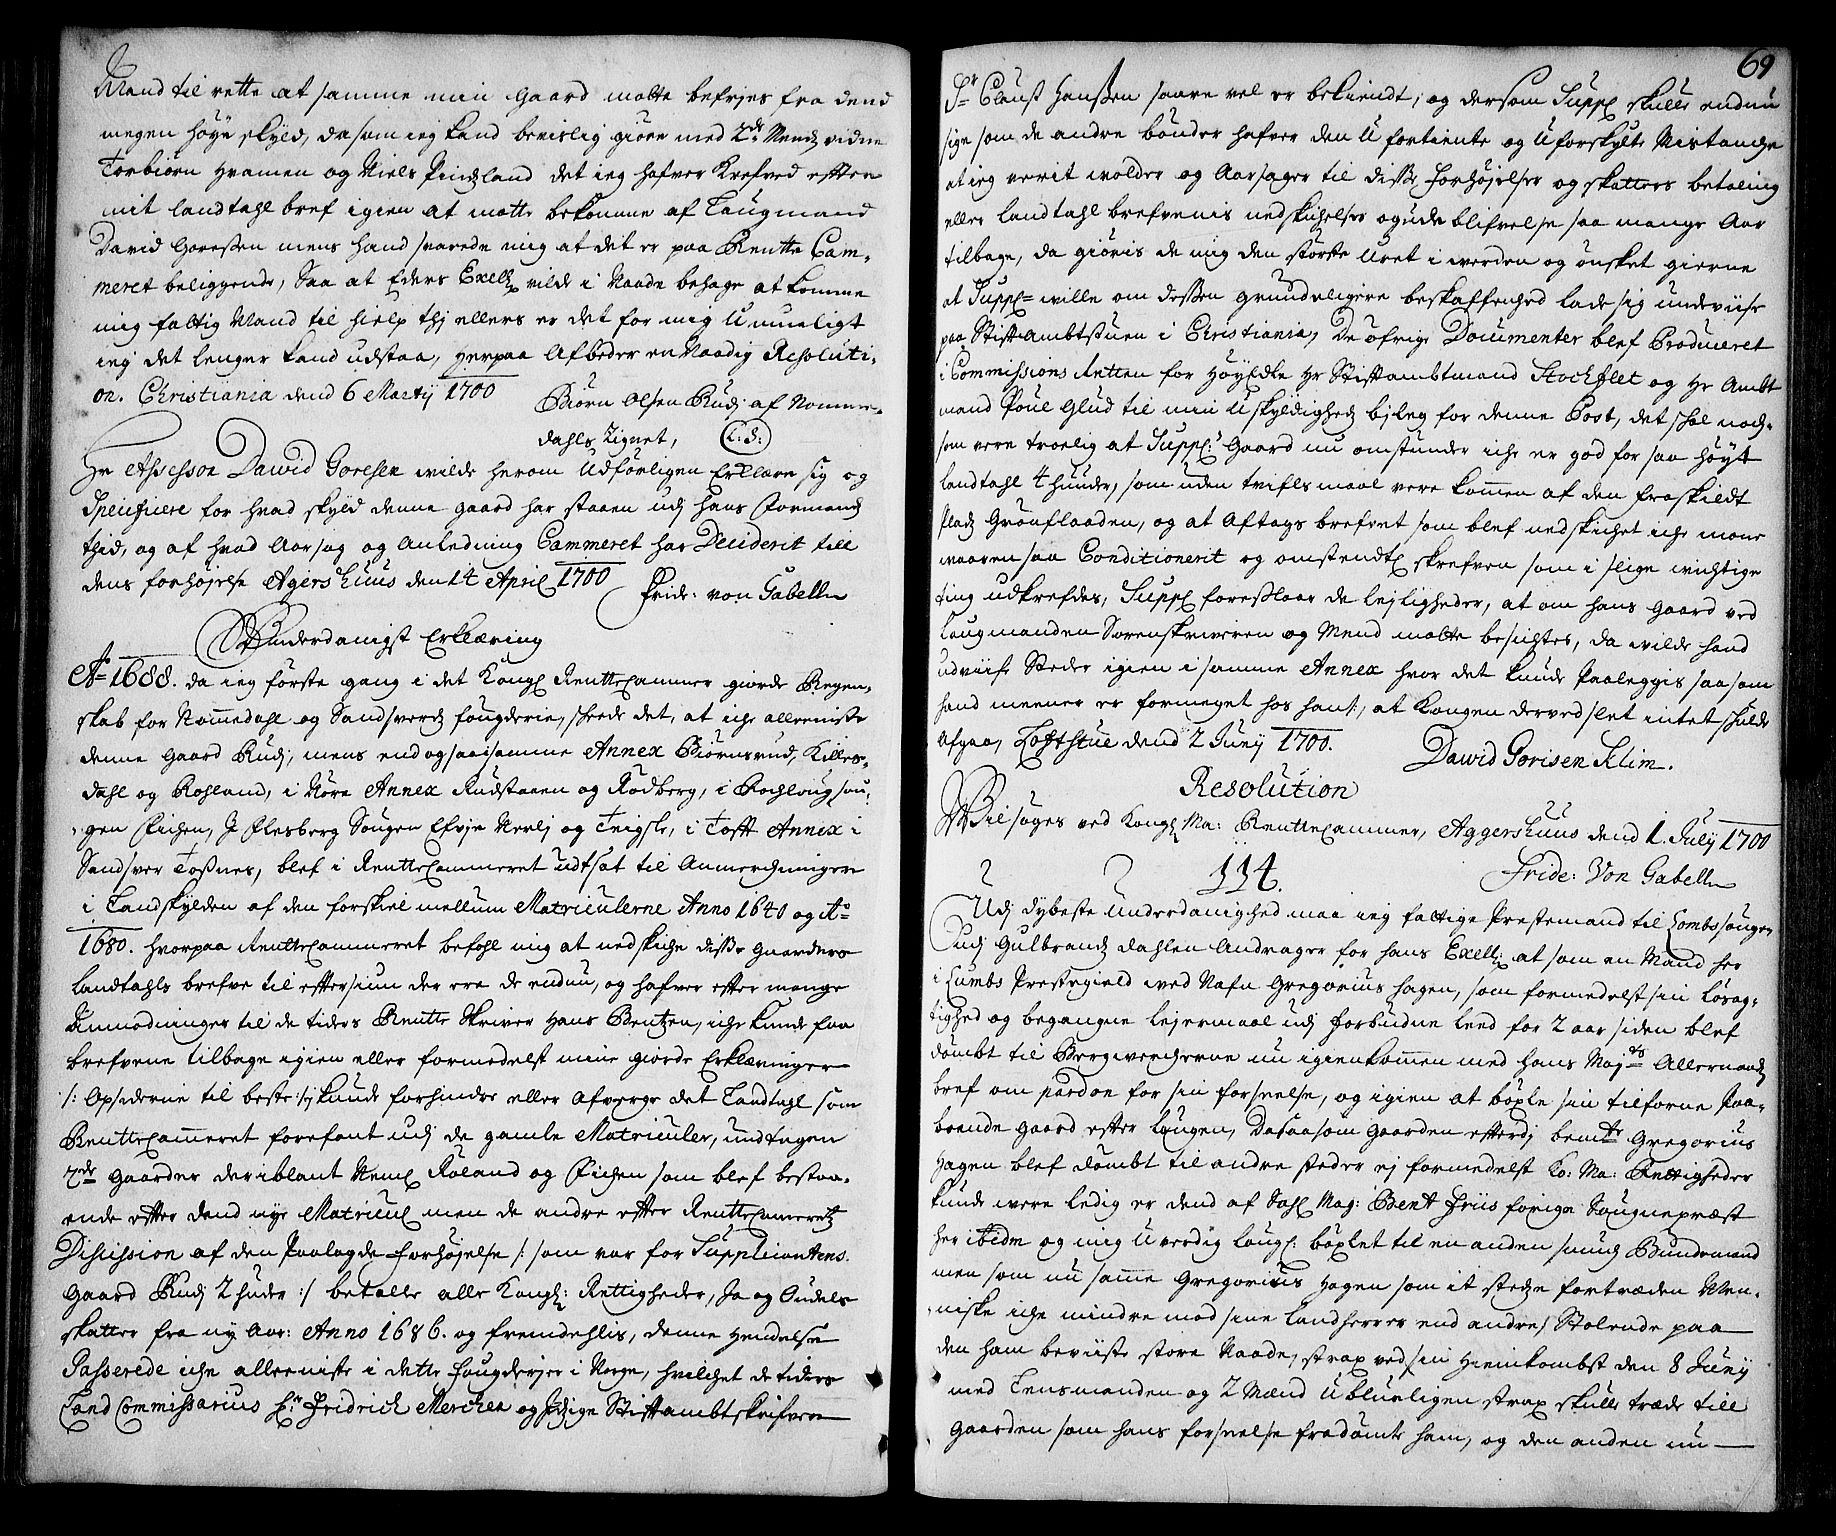 Mand til rette at samme min Gaard motte befrjes fra dend
megen höye skyld, da som ieg kand bevislig giöre med 2de Mends vidne
Torbiörn Framen og Niels Pindzland det ieg hafver Krefved efter
mit landtahl bref igien at motte bekomme af Laugmand
David Goressen mens hand svarede mig at det er paa Rentte Cam-
meret beliggende, Saa at Eders Exell: vilde i Naade behage at komme
mig fattig Mand til hielp thj ellers er det for mig Umueligt
ieg det lenger kand udstaa, Herpaa Afbeder en Naadig Resoluti-
on. Christiania dend 6 Martij 1700
Biörn Olsen Rudj af Nomme-
dahls Zignet, (L.S:)
Hr Assessor Dawid Goresen wilde herom Udförligen Erklære sig og
Speicificere for hvad skyld denne gaard har staaen udj hans Formands
thid, og af hvad Aarsag og Anledning Cammeret har Deciderit till
dens forhöjelse Agershuus den 14 April 1700
Fride: von Gabell
Underdanigst Erklæring
Ao 1688. da ieg förste gang i det Kongl Renttecammer giorde Regen-
skab for Nommedahl og Sandsverds fougderie, skeede det, at iche alleeniste
denne Gaard Rudj, mens end og saa i samme Annex Biörnsrud, Killes-
dahl og Rosland, i Nore Annex Rudstaaen og Rödberg, i Rochloug sou-
gen Eichen, J Flesberg Sougen Efvje Nerlj og Treigsle, i Toft Annex i
Sandsver Tossnes, blef i Renttecammeret udsat til Anmerchninger
i Landskylden af den forskiel mellum Matriculerne Anno 1640 og Ao
1680. hvorpaa Renttecammeret befohl mig at nedskiche disse Gaarders
landtahls brefve til eftersiun der ere de endnu, og hafver efter mange
Anmodninger til de tiders Rentte Skriver Hans Bentzen, iche kunde faa
brefvene tilbage igien eller formedelst mine giorde Erklæringer
/: Opsiderne til beste :/ kunde forhindre eller Afverge det Landtahl som
Renttecammeret forefant udj de gamle Matriculer, undtagen
2de Gaarder deriblant Neml Röland og Eichen som blef bestaa-
ende efter dend nye Matricul men de andre efter Renttecamerets
Discission af den Paalagde forhöjelse /: som var for Supplicantens
Gaard Rudj 2 huder :/ betalle alle Kongl: Rettigheder, Ja og Oudels
skatter fra ny Aar: Anno 1686. og fremdehlis, denne Hendelse
Passerede iche alleeniste i dette fougderje i Norge, hvilchet de tiders
Land Commissarius Hr Fridrich Merchen og J.. Stiftambtskrifver
69
Sr Claust Hanssen saare vel er bekiendt; og dersom Suppl skulle endnu
sige som de andre bönder hafver den U fortiente og Uforskylte Mistanche
at ieg verit wolder og Aarsager til disse forhöjelser og skatters betaling
eller landtahl brefvenis nedskichelser og ude blifvelse saa mange Aar
tilbage, da giöris de mig den störste Uret i werden og önsket gierne
at Suppl wille om dessen grundeligere beskaffenhed lade sig underviise
paa Stiftambtstuen i Christiania, De öfrige Documenter blef Producerit
i Commissions Retten for Höyedle Hr Stiftambtmand Stochflet og Hr Ambt
mand Poul Glud til min Uskyldigheds bileg for denne Post, det skal noch-
som vere troelig at Suppl: Gaard nu omstunder iche er god for saa höyt
landtahl 4 huuder, som uden twifls maal vere kommen af den fraskildt
Plads Grönflaaden, og at Aftags brefvet som blef nedskichet iche mone
waaren saa Conditionerit og omstendtl skrefven som i slige wichtige
ting udkrefdes, Suppl foreslaar de lejligheder, at om hans Gaard ved
Laugmanden Sorenskriveren og Mend motte besichtes, da wilde hand
udviise Steder igien i samme Annex hvor det kunde Paaleggis saa som
hand meener er formeget hos ham, at Kongen derved slet intet skulde
Afgaa, Toftstue dend 2 Junij 1700.
Dawid Gorisen Klim.
Resolution
Wil söges ved Kongl Ma: Renttecammer, Aggershuus dend 1. July 1700
Fride: Von Gabell
114.
Udj dybeste underdanighed maa ieg fattige Prestemand til Lombs sougen
udj Gulbrands dahlen Andrager for hans Exell: at som en Mand her
i Lumbs Prestegield wed Nafn Gregorius Hagen, som formedelst sin Lösag-
tighed og begangne lejermaal udj forbudne leed for 2 aar siden blef
dömbt til Bergwercherne nu igienkommen med hans Majts Allernaads
bref om pardon for sin forseelse, og igien at böxle sin tilforne Paa-
boende gaard efter Lougen, Da saasom gaarden efterdj bemte Gregorius
Hagen blef dömbt til andre steder ej formedelst Ko: Ma: Rettigheder
kunde were ledig er dend af Sahl Mag: Bent Friis forige Sougnepræst
her ibidm og mig Uverdig lougl: böxlet til en anden smuch Bundemand
men som nu samme Gregorius Hagen som it stedze fortræden Men-
niske iche mindre mod sine landherrer end andre/ Stolende paa
den ham beviiste store Naade, strax ved sin Hiemkombst den 8 Junij
med Lensmanden og 2 Mænd U blueligen strax skulle træde till
Gaarden som hans forseelse fradömte ham, og den anden nu